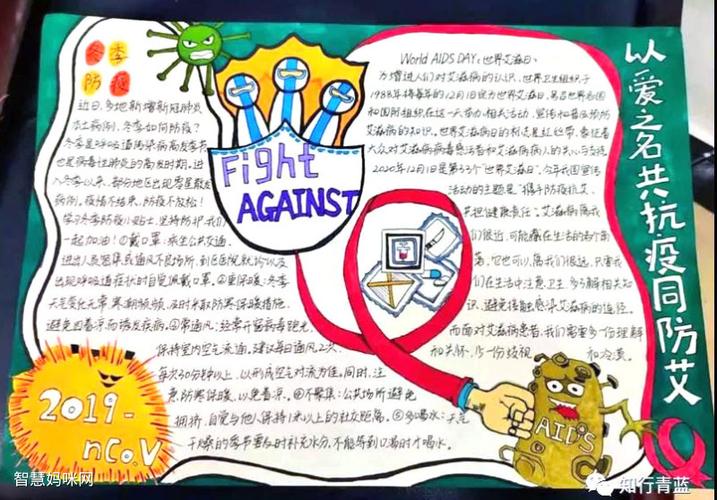 冬季
防疫
近日,多地新增新冠肺炎
本土病例,冬季如何防疫?
冬季是呼吸道传染病高发季节
也是病毒性肺炎的高发时期。进
入冬季以来,部分地区出现零星散发
病例,疫情不结束,防疫不放松!
学习冬季防疫小贴士,坚持防护,我们
一起加油!①戴口罩:乘坐公共交通、
进出人员密集或通风不良场所,到医院就诊以及
出现呼吸道症状时自觉佩戴口罩。②重保暖:冬季
天气变化无常,寒潮频频,及时采取防寒保暖措施,
避免因着凉而诱发疾病。③常通风:经常开窗病毒跑光,
保持室内空气流通。建议每日通风2次,
每次30分钟以上,以形成空气对流为佳。同时,注
意防寒保暖,以免着凉。④不聚集:公共场所避免
拥挤,自觉与他人保持1米以上的社交距离。⑤多喝水:天气
干燥的季节要及时补充水分,不能等到口渴时才喝水。
Fight
AGAINST
2019-
nCoV
World AIDS DAY:世界艾滋日、
为增进人们对艾滋病的认识,世界卫生组织于
1988年将每年的12月1日定为世界艾滋日,号召世界各国
和国际组织在这一天举办相关活动,宣传和普及预防
艾滋病的知识。世界艾滋病日的标志是红丝带,象征着
大众对艾滋病病毒感染者和艾滋病病人的关心与支持
2020年12月1日是第33个"世界艾滋日",今年我国宣传
活动的主题是"携手防疫抗艾,
共担健康责任"。艾滋病离我
们很近,可能藏在生活的各个角
落,它也可以离我们很远,只要我
们在生活中注意卫生,多了解相关知
识,避免接触感染艾滋病的途径。
而面对艾滋病患者,我们需要多一份理解
和关怀,少一份歧视和冷漠。
AIDS
以爱之名共抗疫同防艾
智慧妈咪网
知行青蓝